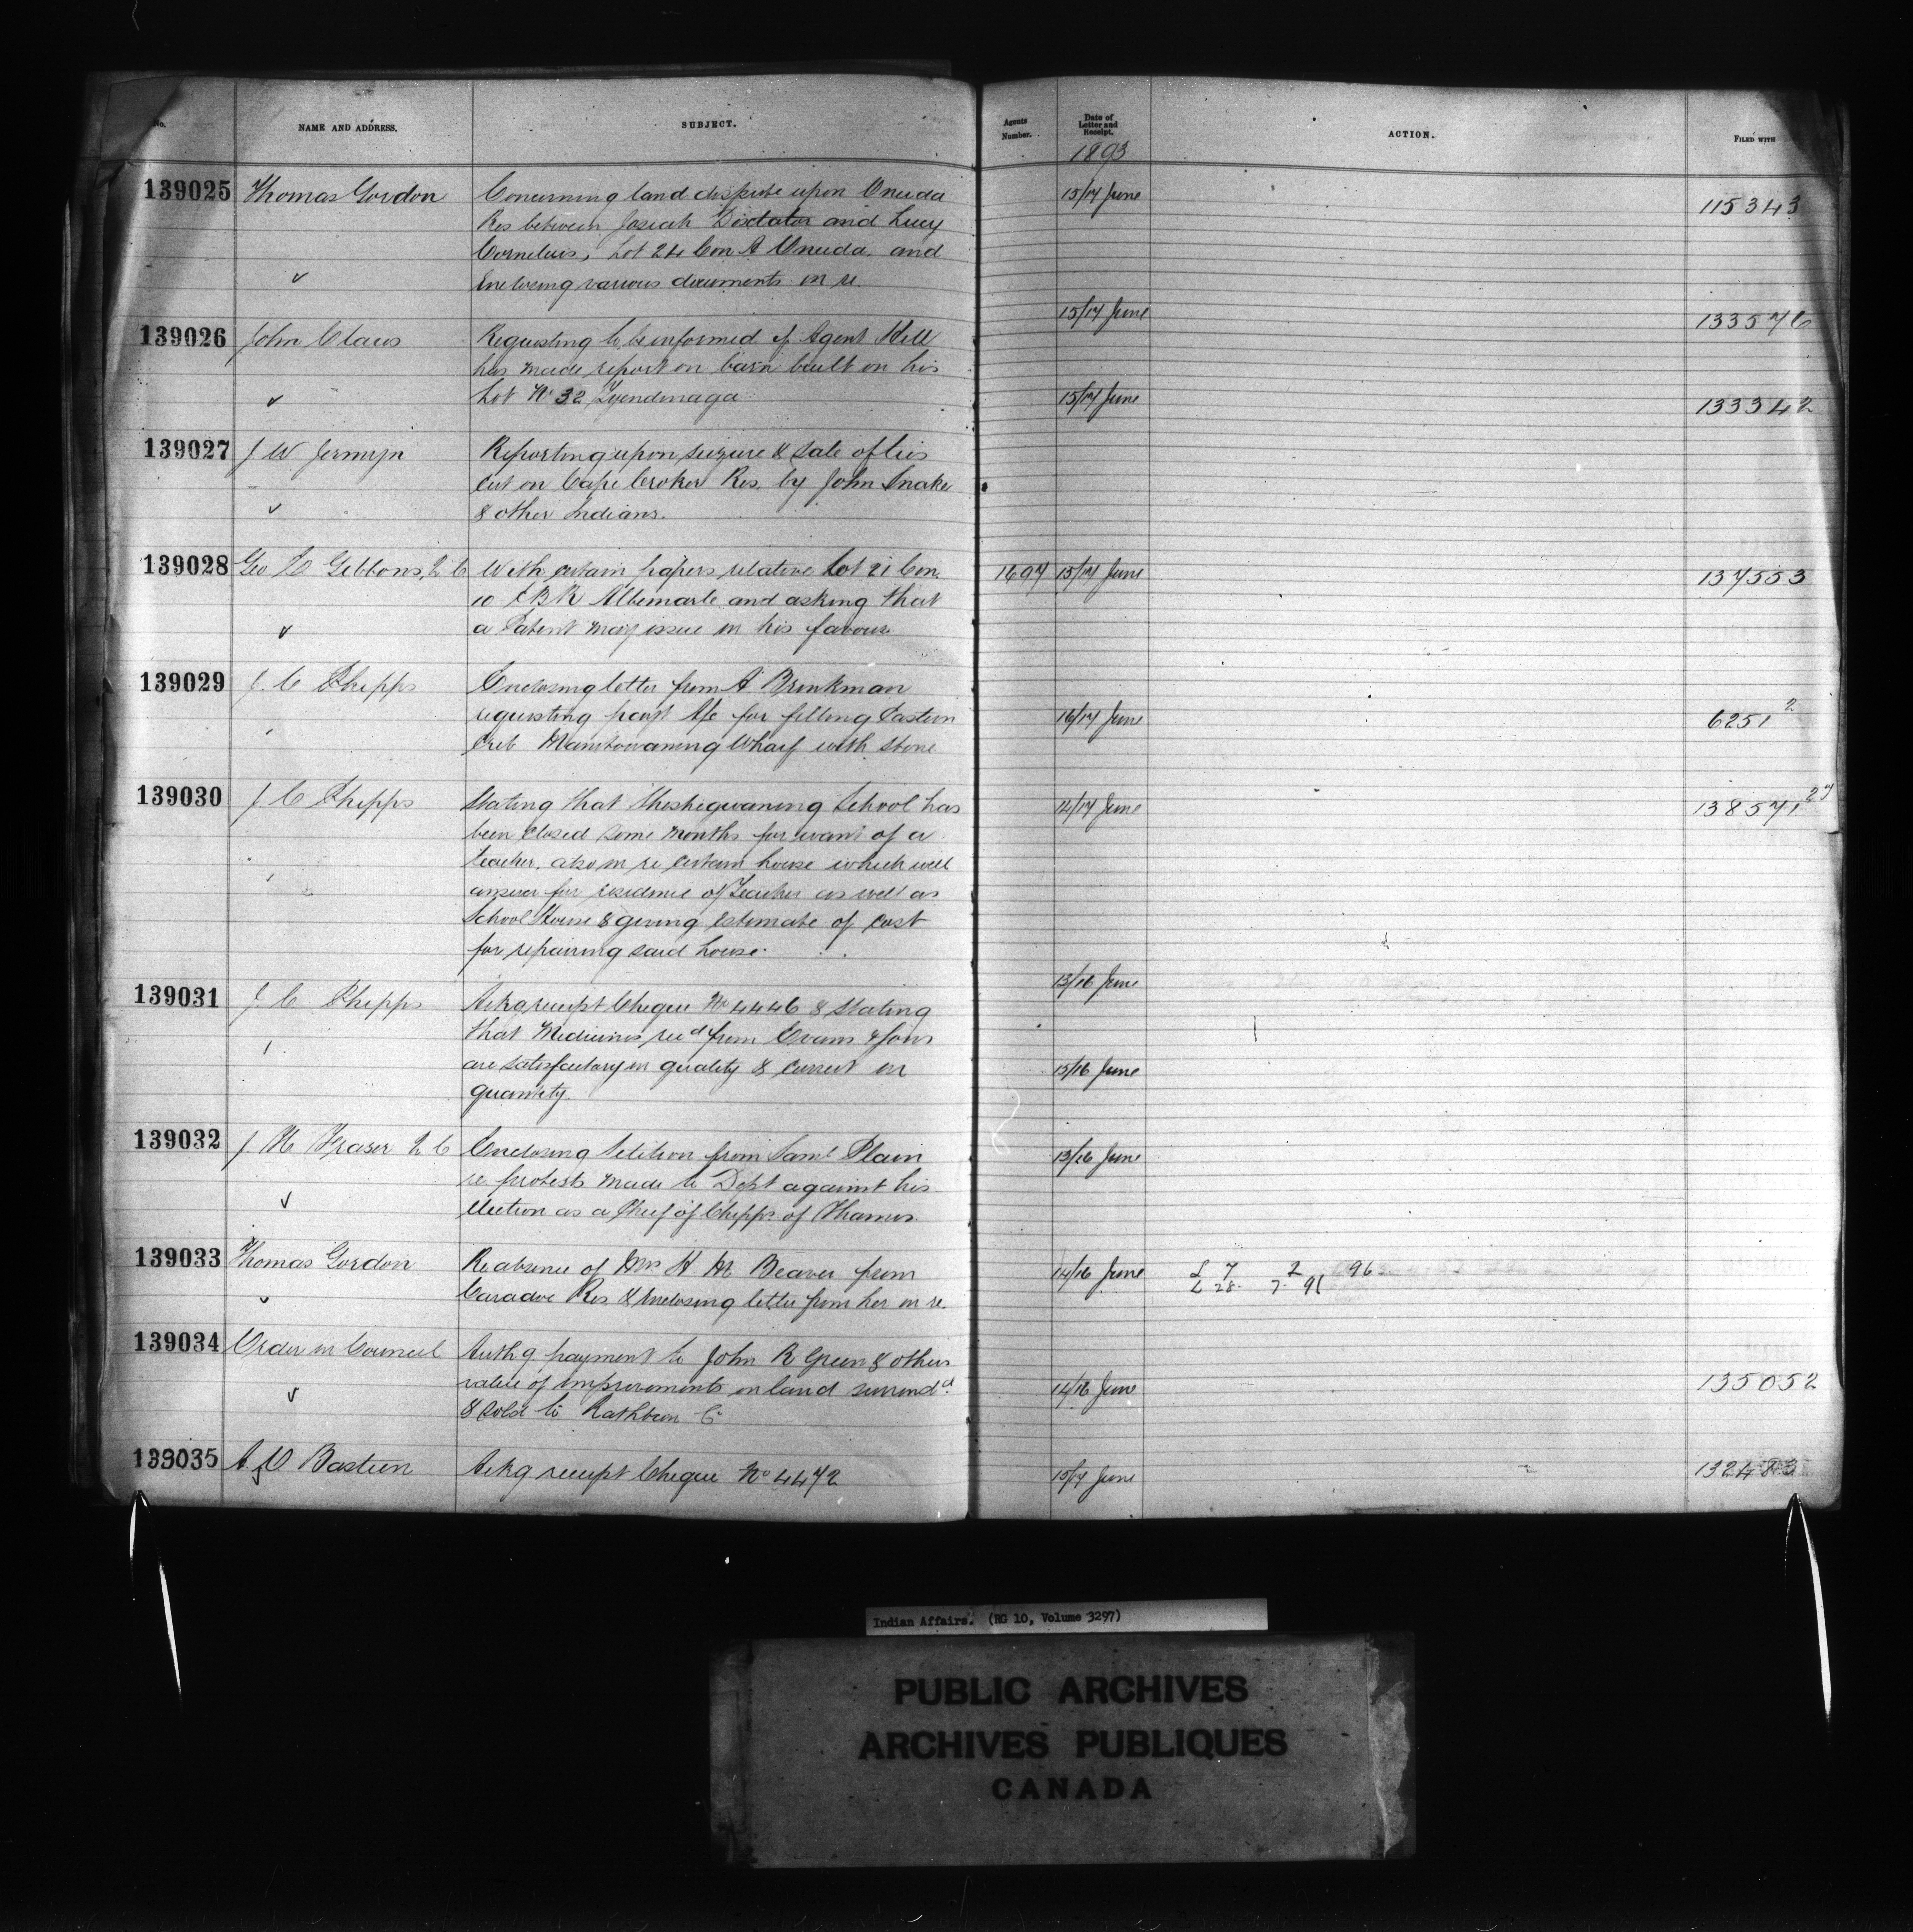 No. NAME AND ADDRESS. SUBJECT. Agents Number. Date of Letter and Receipt. ACTION. FILED WITH
1893
139025 Thomas Gordon Concerning land dispute upon Oneida 15/17 June 115343
Res between Josiah Doxtator and Lucy
Cornelius, Lot 24 Con A Oneida and
✓ Enclosing various documents in re.
139026 John Claus Requesting to be informed if Agent Hill 15/17 June 133576
has made report on barn built on his
✓ Lot No 32 Tyendinaga 15/17 June 133342
139027 J W Jermyn Reporting upon seizure & sale of ties
cut on Cape Croker Res. by John Snake
✓ & other Indians.
139028 Geo C Gibbons, Q C With certain papers relative Lot 21 Con. 1697 15/17 June 137553
10 E B R Albemarle and asking that
✓ a Patent may issue in his favour
139029 J. C Phipps Enclosing letter from A Brinkman
requesting paymt a/c for filling Eastern 16/17 June 6251 2
Crib Manitowaning Wharf with stone
139030 J C Phipps Stating that Sheshegwaning School has 14/17 June 138571 27
been closed some months for want of a
teacher. also in re certain house which will
answer for residence of Teacher as well as
School House & giving estimate of cost
for repairing said house. 13/16 June
139031 J C. Phipps Ackg receipt Cheque No 4446 & stating
that Medicines recd from Evans & Sons
are satisfactory in quality & correct in 15/16 June
quantity.
139032 J H Fraser Q C Enclosing Petition from Saml Plain 13/16 June
re protest made to Dept against his
✓ election as a Chief of Chipps. of Thames.
139033 Thomas Gordon Re absence of Mrs H M Beaver from 14/16 June L 7 2 96
✓ Caradoc Res & Enclosing letter from her in re. L 28. 7. 91
139034 Order in Council Authg. payment to John R Green & others
✓ value of improvements on land surrendd 14/16 June 135052
& sold to Rathbun Co
139035 A O Bastien Ackg receipt Cheque No 4472 15/17 June 132483
Indian Affairs. (RG 10, Volume 3297)
PUBLIC ARCHIVES
ARCHIVES PUBLIQUES
CANADA